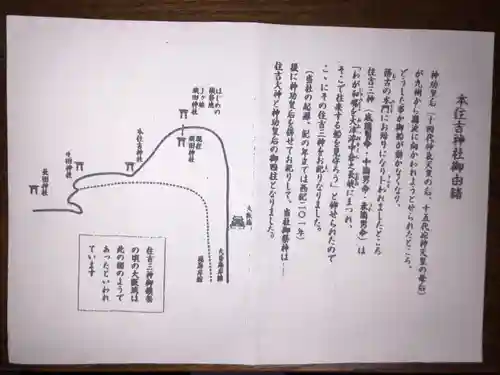 本住吉神社御由緒
神功皇后（十四代仲哀天皇の后、十五代応神天皇の母后）
が九州から難波に向かわれようとせられたところ、
どうした事か御船が動かなくなり、
務古の水門にお泊りになりうらわれましたところ
住吉三神（底筒男命・中筒男命・表筒男命）は
「わが和魂を大津渟中倉之長峡にまつれ、
そこで往来する船を見守ろう」と仰せられたので
ここにその住吉三神をお祀りなりました。
（当社の起源、紀の年では西紀二〇一年）
後に神功皇后を併せてお祀りして、当社御祭神は
住吉大神と神功皇后の御四柱となりました。
はじめの
現在
生田神社
本住吉神社
長田神社
大阪城
住吉三神御鎮斎
の頃の大阪城は
此の図のようで
あったといわれ
ています